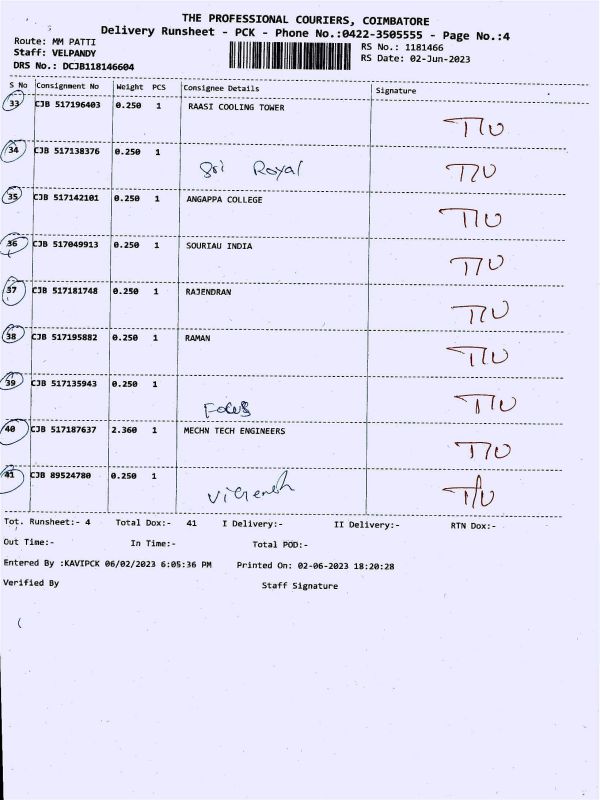 THE PROFESSIONAL COURIERS, COIMBATORE
Delivery Runsheet - PCK - Phone No.:0422-3505555 - Page No.:4
Route: MM PATTI
RS No.: 1181466
Staff: VELPANDY
RS Date: 02-Jun-2023
DRS No.: DCJB118146604
S No Consignment No Weight PCS Consignee Details Signature
33 CJB 517196403 0.250 1 RAASI COOLING TOWER
34 CJB 517138376 0.250 1
Sri Royal
35 CJB 517142101 0.250 1 ANGAPPA COLLEGE
36 CJB 517049913 0.250 1 SOURIAU INDIA
37 CJB 517181748 0.250 1 RAJENDRAN
38 CJB 517195882 0.250 1 RAMAN
39 CJB 517135943 0.250 1
Focus
40 CJB 517187637 2.360 1 MECHN TECH ENGINEERS
41 CJB 89524780 0.250 1
Tot. Runsheet:- 4 Total Dox:- 41 I Delivery:- II Delivery:- RTN Dox:-
Out Time:- In Time:- Total POD:-
Entered By :KAVIPCK 06/02/2023 6:05:36 PM Printed On: 02-06-2023 18:20:28
Verified By Staff Signature